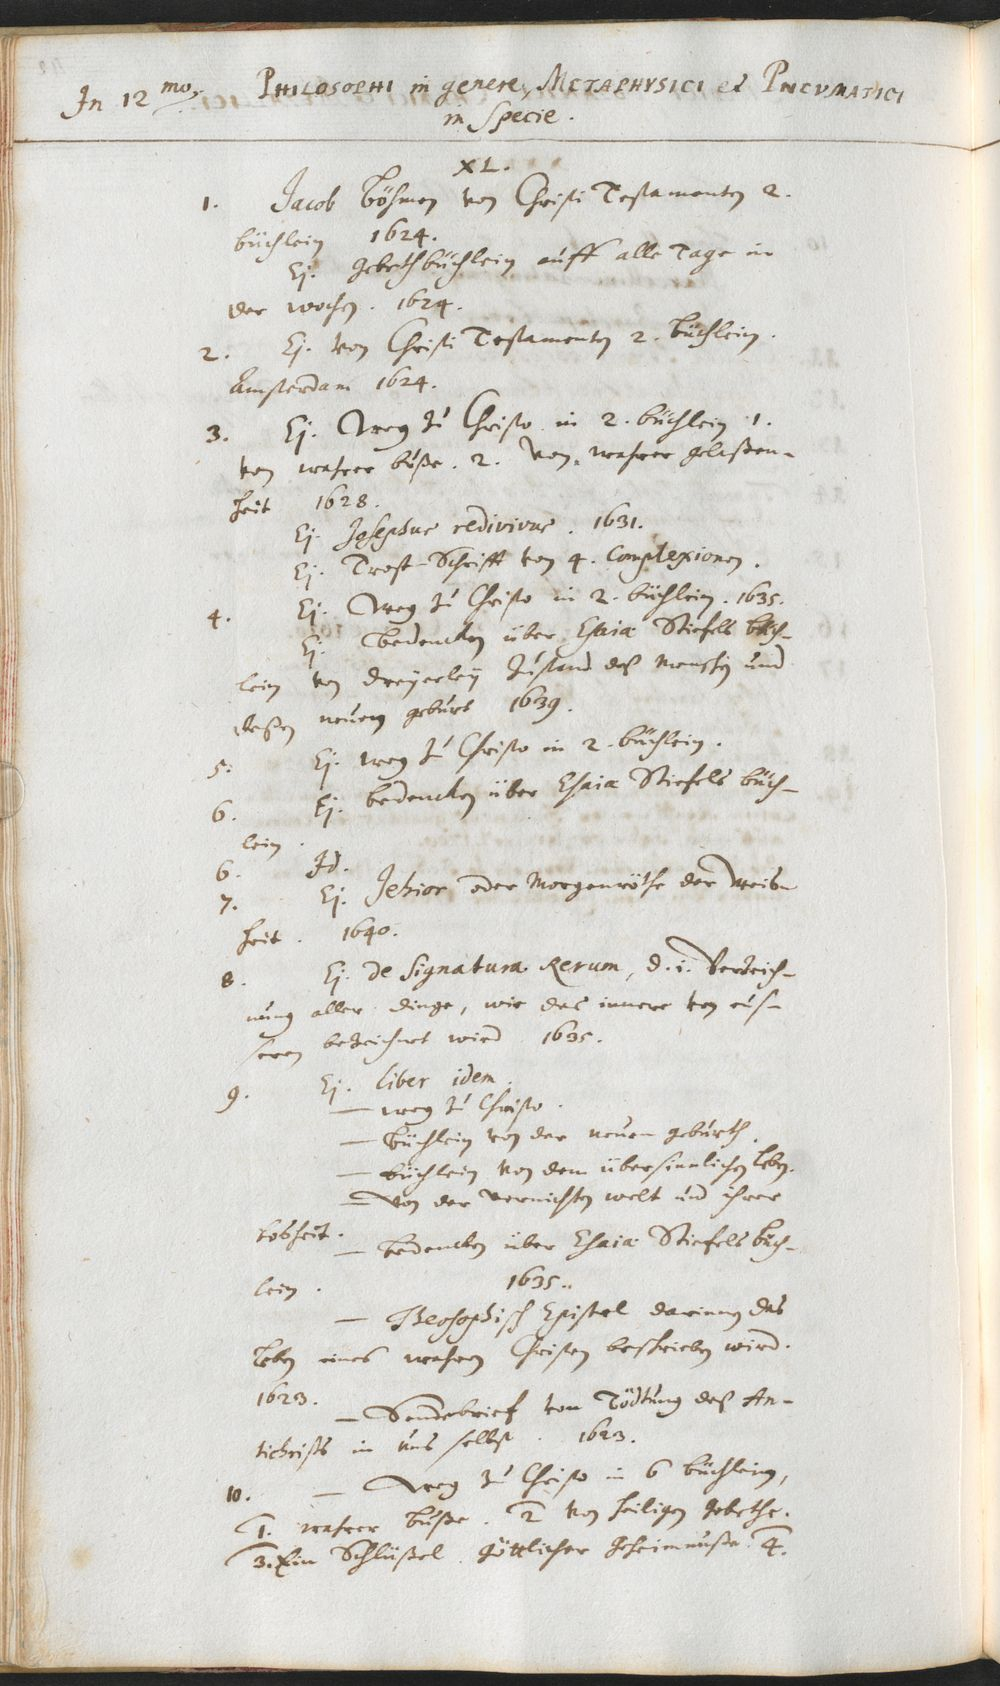 In 12mo. PHILOSOPHI in genere, METAPHYSICI et PNEVMATICI
in Specie.
XL.
1. Jacob Böhmen von Christi Testamenten 2.
büchlein 1624.
Ej. Gebethbüchlein auff alle Tage in
der wochen. 1624.
2. Ej. von Christi Testamenten 2. büchlein.
Amsterdam 1624.
3. Ej. Weg zu Christo in 2. büchlein 1.
von wahrer buße. 2. Von wahrer gelaßen-
heit 1628.
Ej. Josephus redivivus. 1631.
Ej. Trost-Schrifft von 4. Complexionen.
4. Ej. Weg zu Christo in 2. büchlein. 1635.
Ej. Bedencken über Esaiæ Stiefels büch-
lein von dreyerley Zustand deß Menschen und
deßen neuen geburt 1639.
5. Ej. weg zu Christo in 2. büchlein.
6. Ej. bedencken über Esaiæ Stiefels büch-
lein.
6. Id.
7. Ej. Jehior oder Morgenröthe der Weis-
heit. 1640.
8. Ej. De Signatura Rerum, d. i. Verzeich-
nung aller dinge, wie das innere von eus-
seren bezeichnet wird 1635.
9. Ej. liber idem.
— weg zu Christo.
— Büchlein von der neuen geburth.
— büchlein von dem übersinnlichen leben.
— Von der vernichten welt und ihrer
boßheit.
— Bedencken über Esaiæ Stiefels büch-
lein. 1635.
— Theosophisch Epistel darinnen das
leben eines wahren Christen beschrieben wird.
1623.
— Sendebrief von Tödtung deß An-
tichrists in uns selbst. 1623.
10. — Weg zu Christo in 6 büchlein,
1. wahrer buße. 2 von heiligen gebethe.
3. Ein Schlüßel göttlicher Geheimnuße. 4.